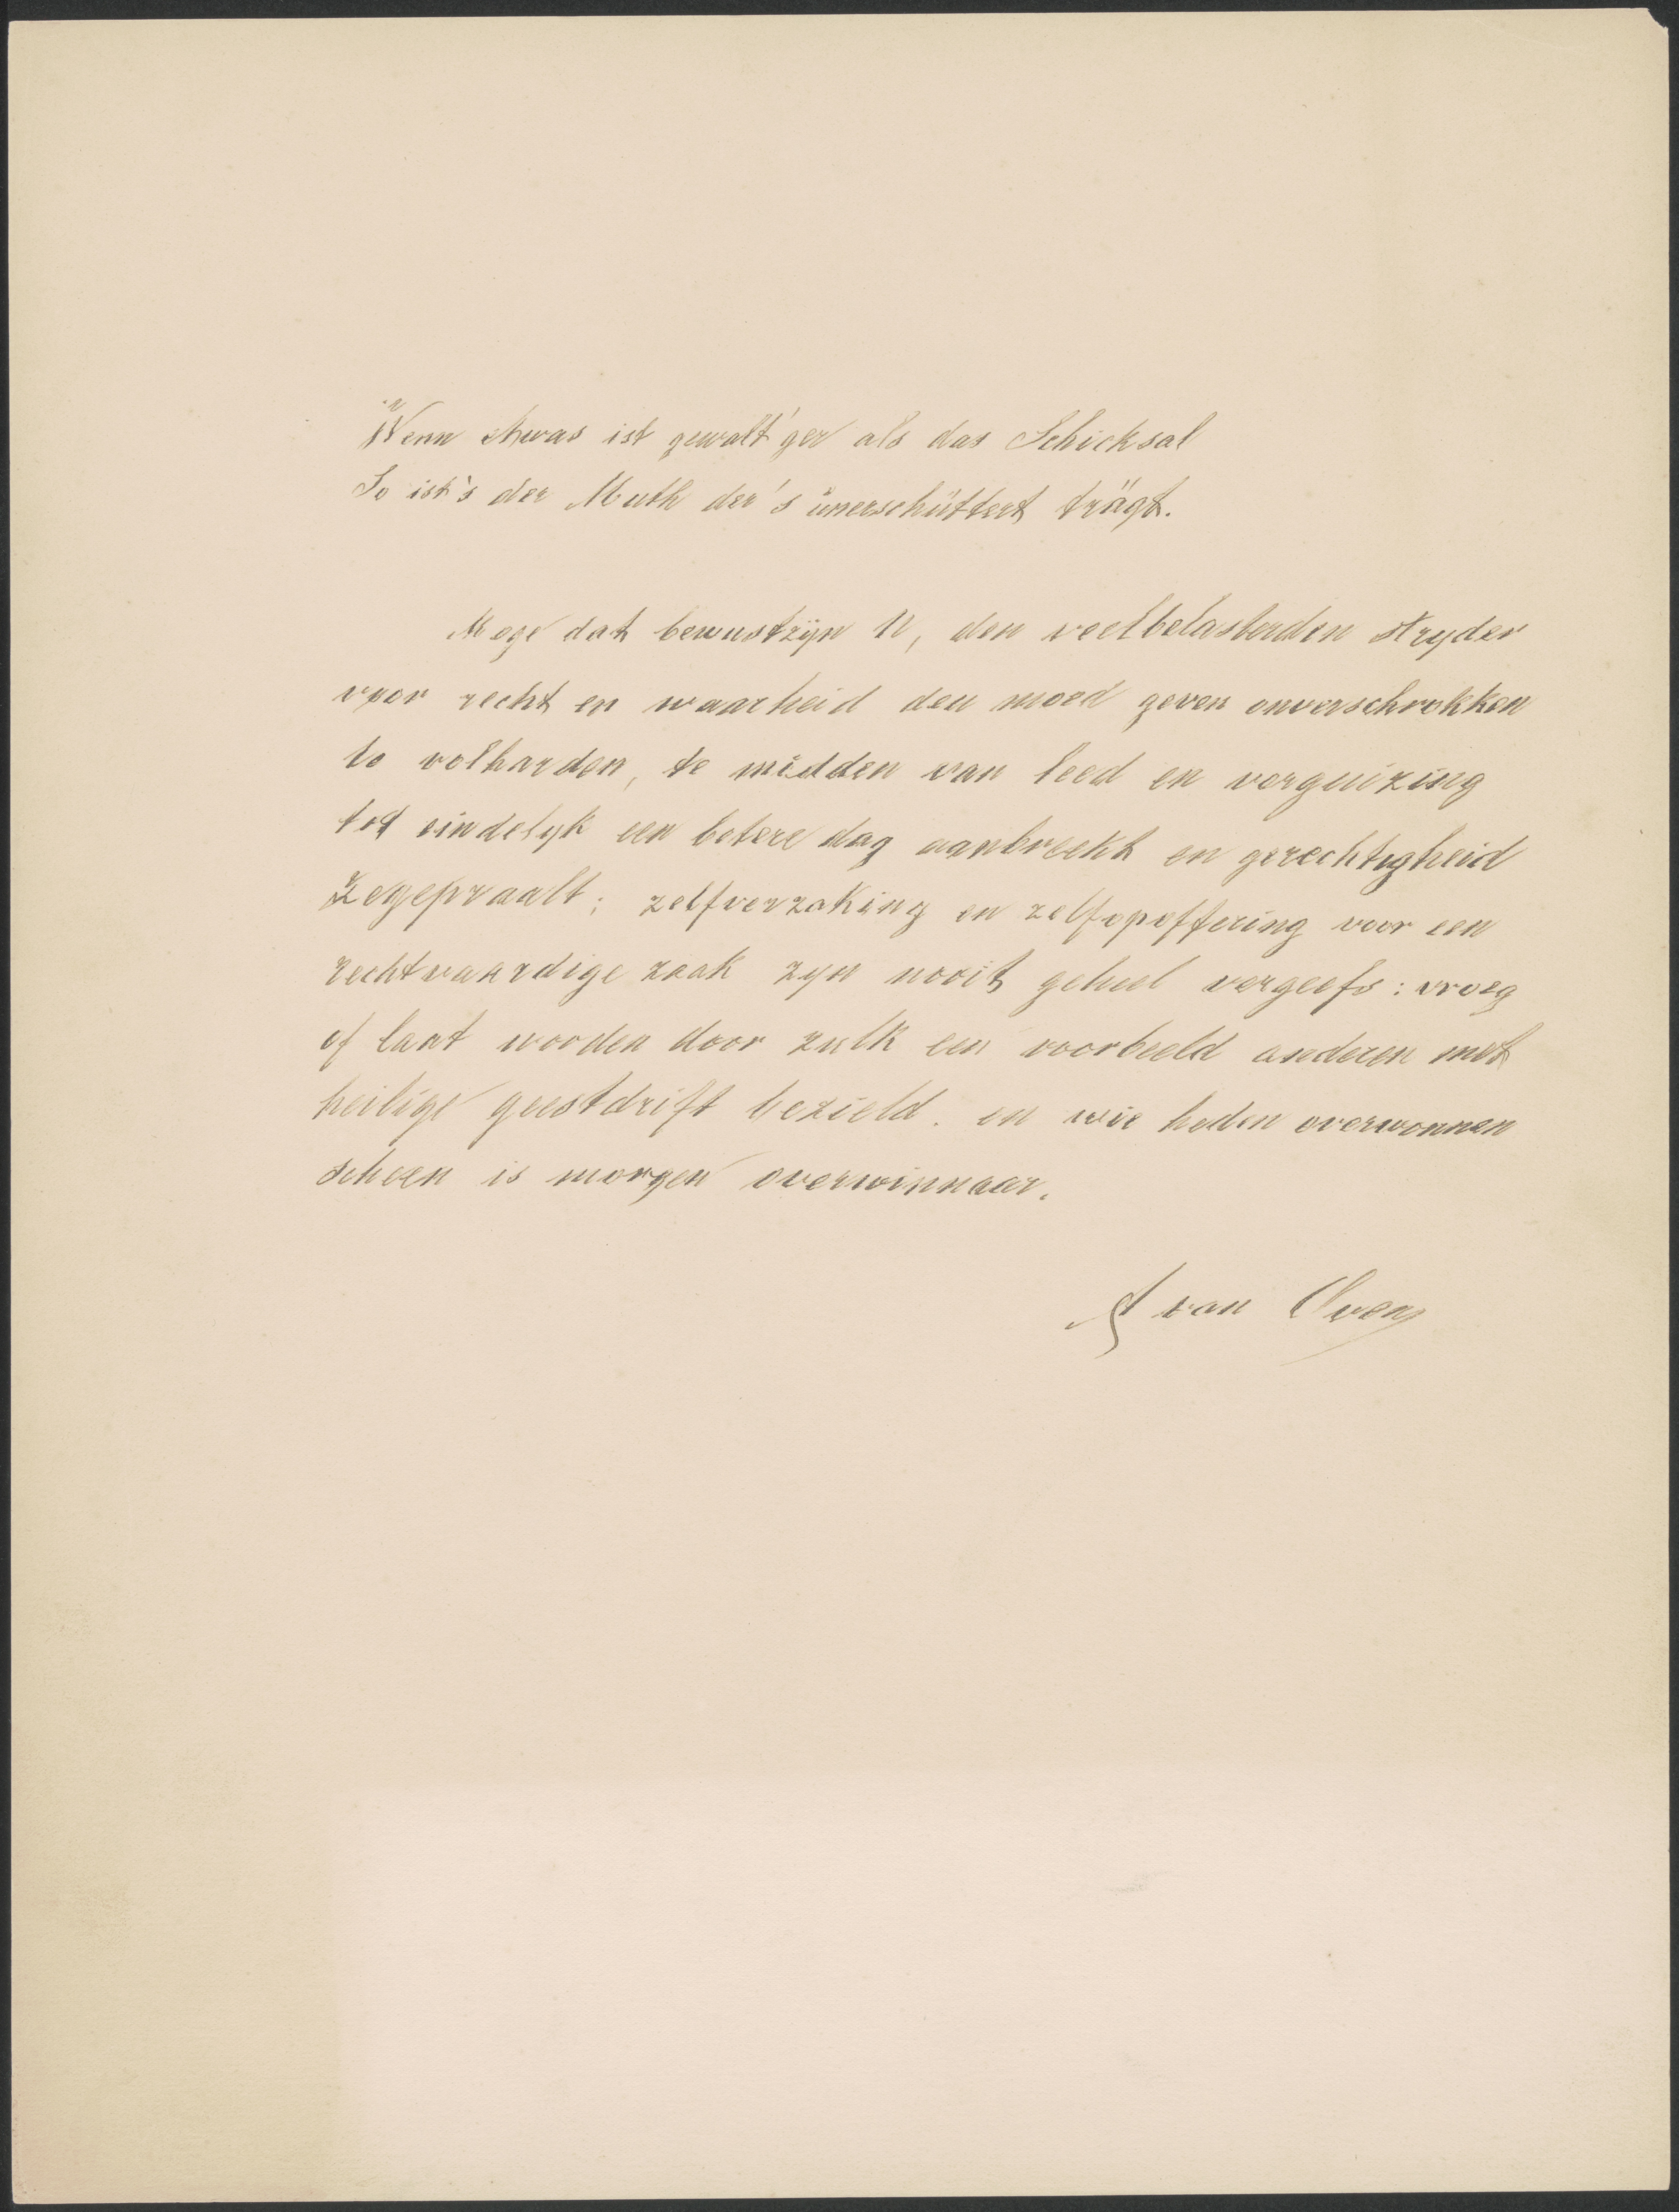 "Wenn etwas ist gewalt'ger als das Schicksal
So ist's der Muth der's ünerschüttert trägt.
Moge dat bewustzijn U, den veelbelasterden stryder
voor recht en waarheid den moed geven onverschrokken
te volharden, te midden van leed en verguizing
tot eindelyk een betere dag aanbreekt en gerechtigheid
zegepraalt; zelfverzaking en zelfopoffering voor een
rechtvaardige zaak zyn nooit geheel vergeefs: vroeg
of laat worden door zulk een voorbeeld anderen met
heilige geestdrift bezield. en wie heden overwonnen
scheen is morgen overwinnaar.
A van Oven